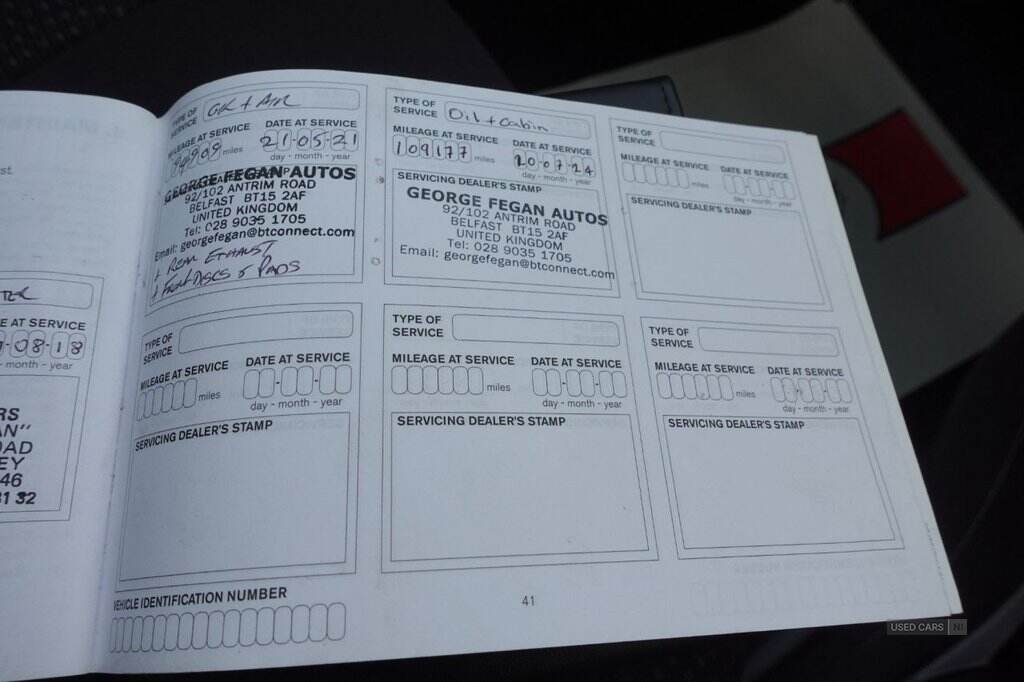 TYPE OF
SERVICE
MILEAGE AT SERVICE
DATE AT SERVICE
miles
21-05-21
day - month - year
GEORGE FEGAN AUTOS
92/102 ANTRIM ROAD
BELFAST BT15 2AF
UNITED KINGDOM
Tel: 028 9035 1705
Email: georgefegan@btconnect.com
+ REAR EXHAUST
+ FRONT DISCS & PADS
TYPE OF
SERVICE
Oil + Cabin
MILEAGE AT SERVICE
DATE AT SERVICE
109177 miles
20-07-24
day - month - year
SERVICING DEALER'S STAMP
GEORGE FEGAN AUTOS
92/102 ANTRIM ROAD
BELFAST BT15 2AF
UNITED KINGDOM
Tel: 028 9035 1705
Email: georgefegan@btconnect.com
TYPE OF
SERVICE
MILEAGE AT SERVICE
DATE AT SERVICE
miles
day - month - year
SERVICING DEALER'S STAMP
E AT SERVICE
-08-18
- month - year
RS
AN"
OAD
EY
46
31 32
TYPE OF
SERVICE
MILEAGE AT SERVICE
DATE AT SERVICE
miles
day - month - year
SERVICING DEALER'S STAMP
TYPE OF
SERVICE
MILEAGE AT SERVICE
DATE AT SERVICE
miles
day - month - year
SERVICING DEALER'S STAMP
TYPE OF
SERVICE
MILEAGE AT SERVICE
DATE AT SERVICE
miles
day - month - year
SERVICING DEALER'S STAMP
VEHICLE IDENTIFICATION NUMBER
41
USED CARS NI